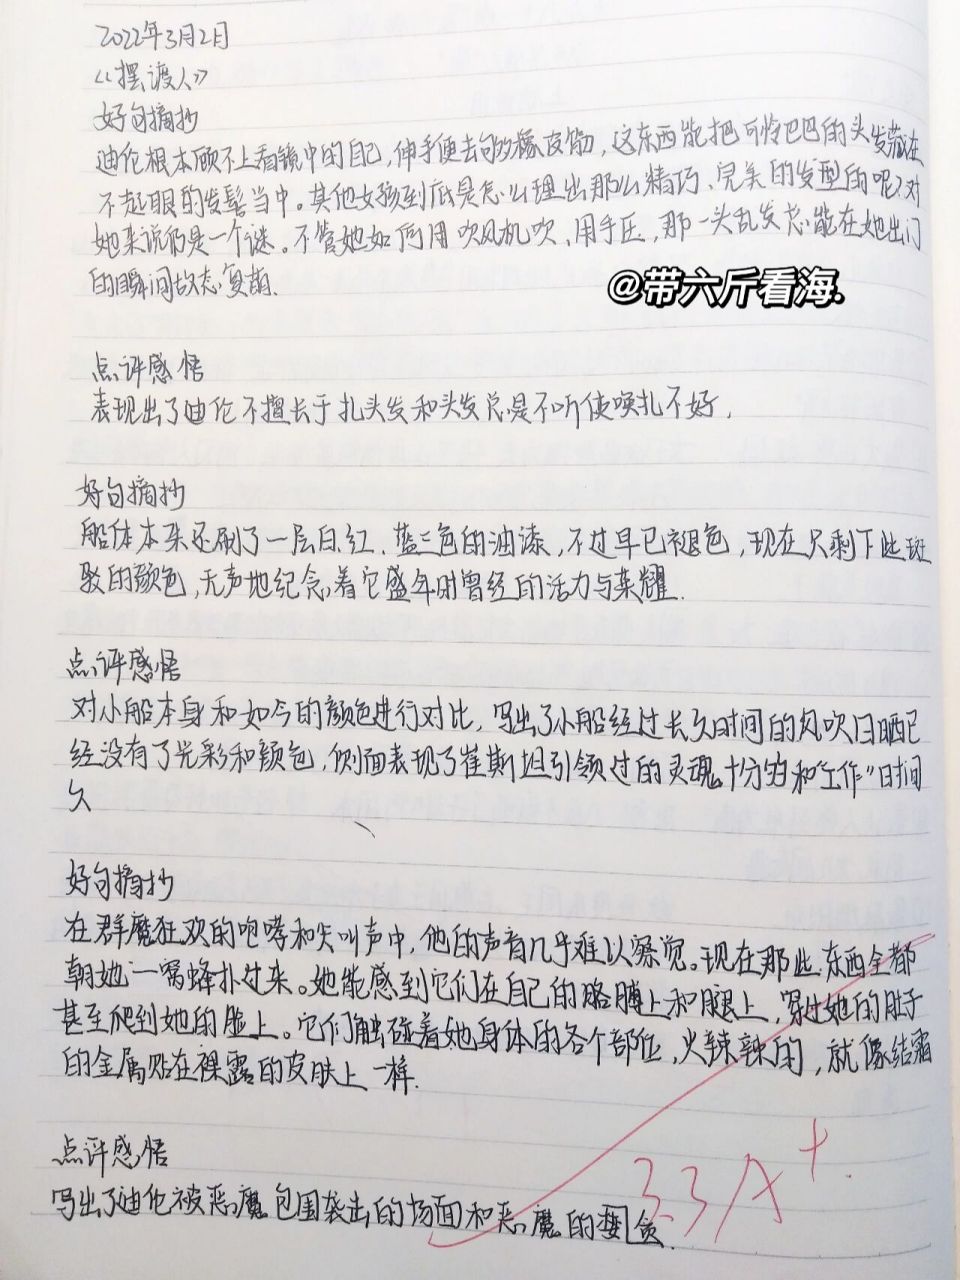 2022年3月2日
《摆渡人》
好句摘抄
迪伦根本顾不上看镜中的自己,伸手便去够橡皮筋,这东西能把可怜巴巴的头发藏在
不起眼的发髻当中。其他女孩到底是怎么理出那么精巧、完美的发型的呢?对
她来说仍是一个谜。不管她如何用吹风机吹、用手压,那一头乱发总能在她出门
的瞬间故态复萌.
@带六斤看海.
点评感悟
表现出了迪伦不擅长于扎头发和头发总是不听使唤扎不好.
好句摘抄
船体本来还刷了一层白、红、蓝三色的油漆,不过早已褪色,现在只剩下些斑
驳的颜色,无声地纪念着它盛年时曾经的活力与荣耀.
点评感悟
对小船本身和如今的颜色进行对比,写出了小船经过长久时间的风吹日晒已
经没有了光彩和颜色,侧面表现了崔斯坦引领过的灵魂十分的和"工作"时间
久
好句摘抄
在群魔狂欢的咆哮和尖叫声中,他的声音几乎难以察觉。现在那些东西全都
朝她一窝蜂扑过来。她能感到它们在自己的胳膊上和腿上,穿过她的肚子
甚至爬到她的脸上。它们触碰着她身体的各个部位,火辣辣的,就像结霜
的金属贴在裸露的皮肤上一样.
点评感悟
写出了迪伦被恶魔包围袭击的场面和恶魔的贪
3.3 A+